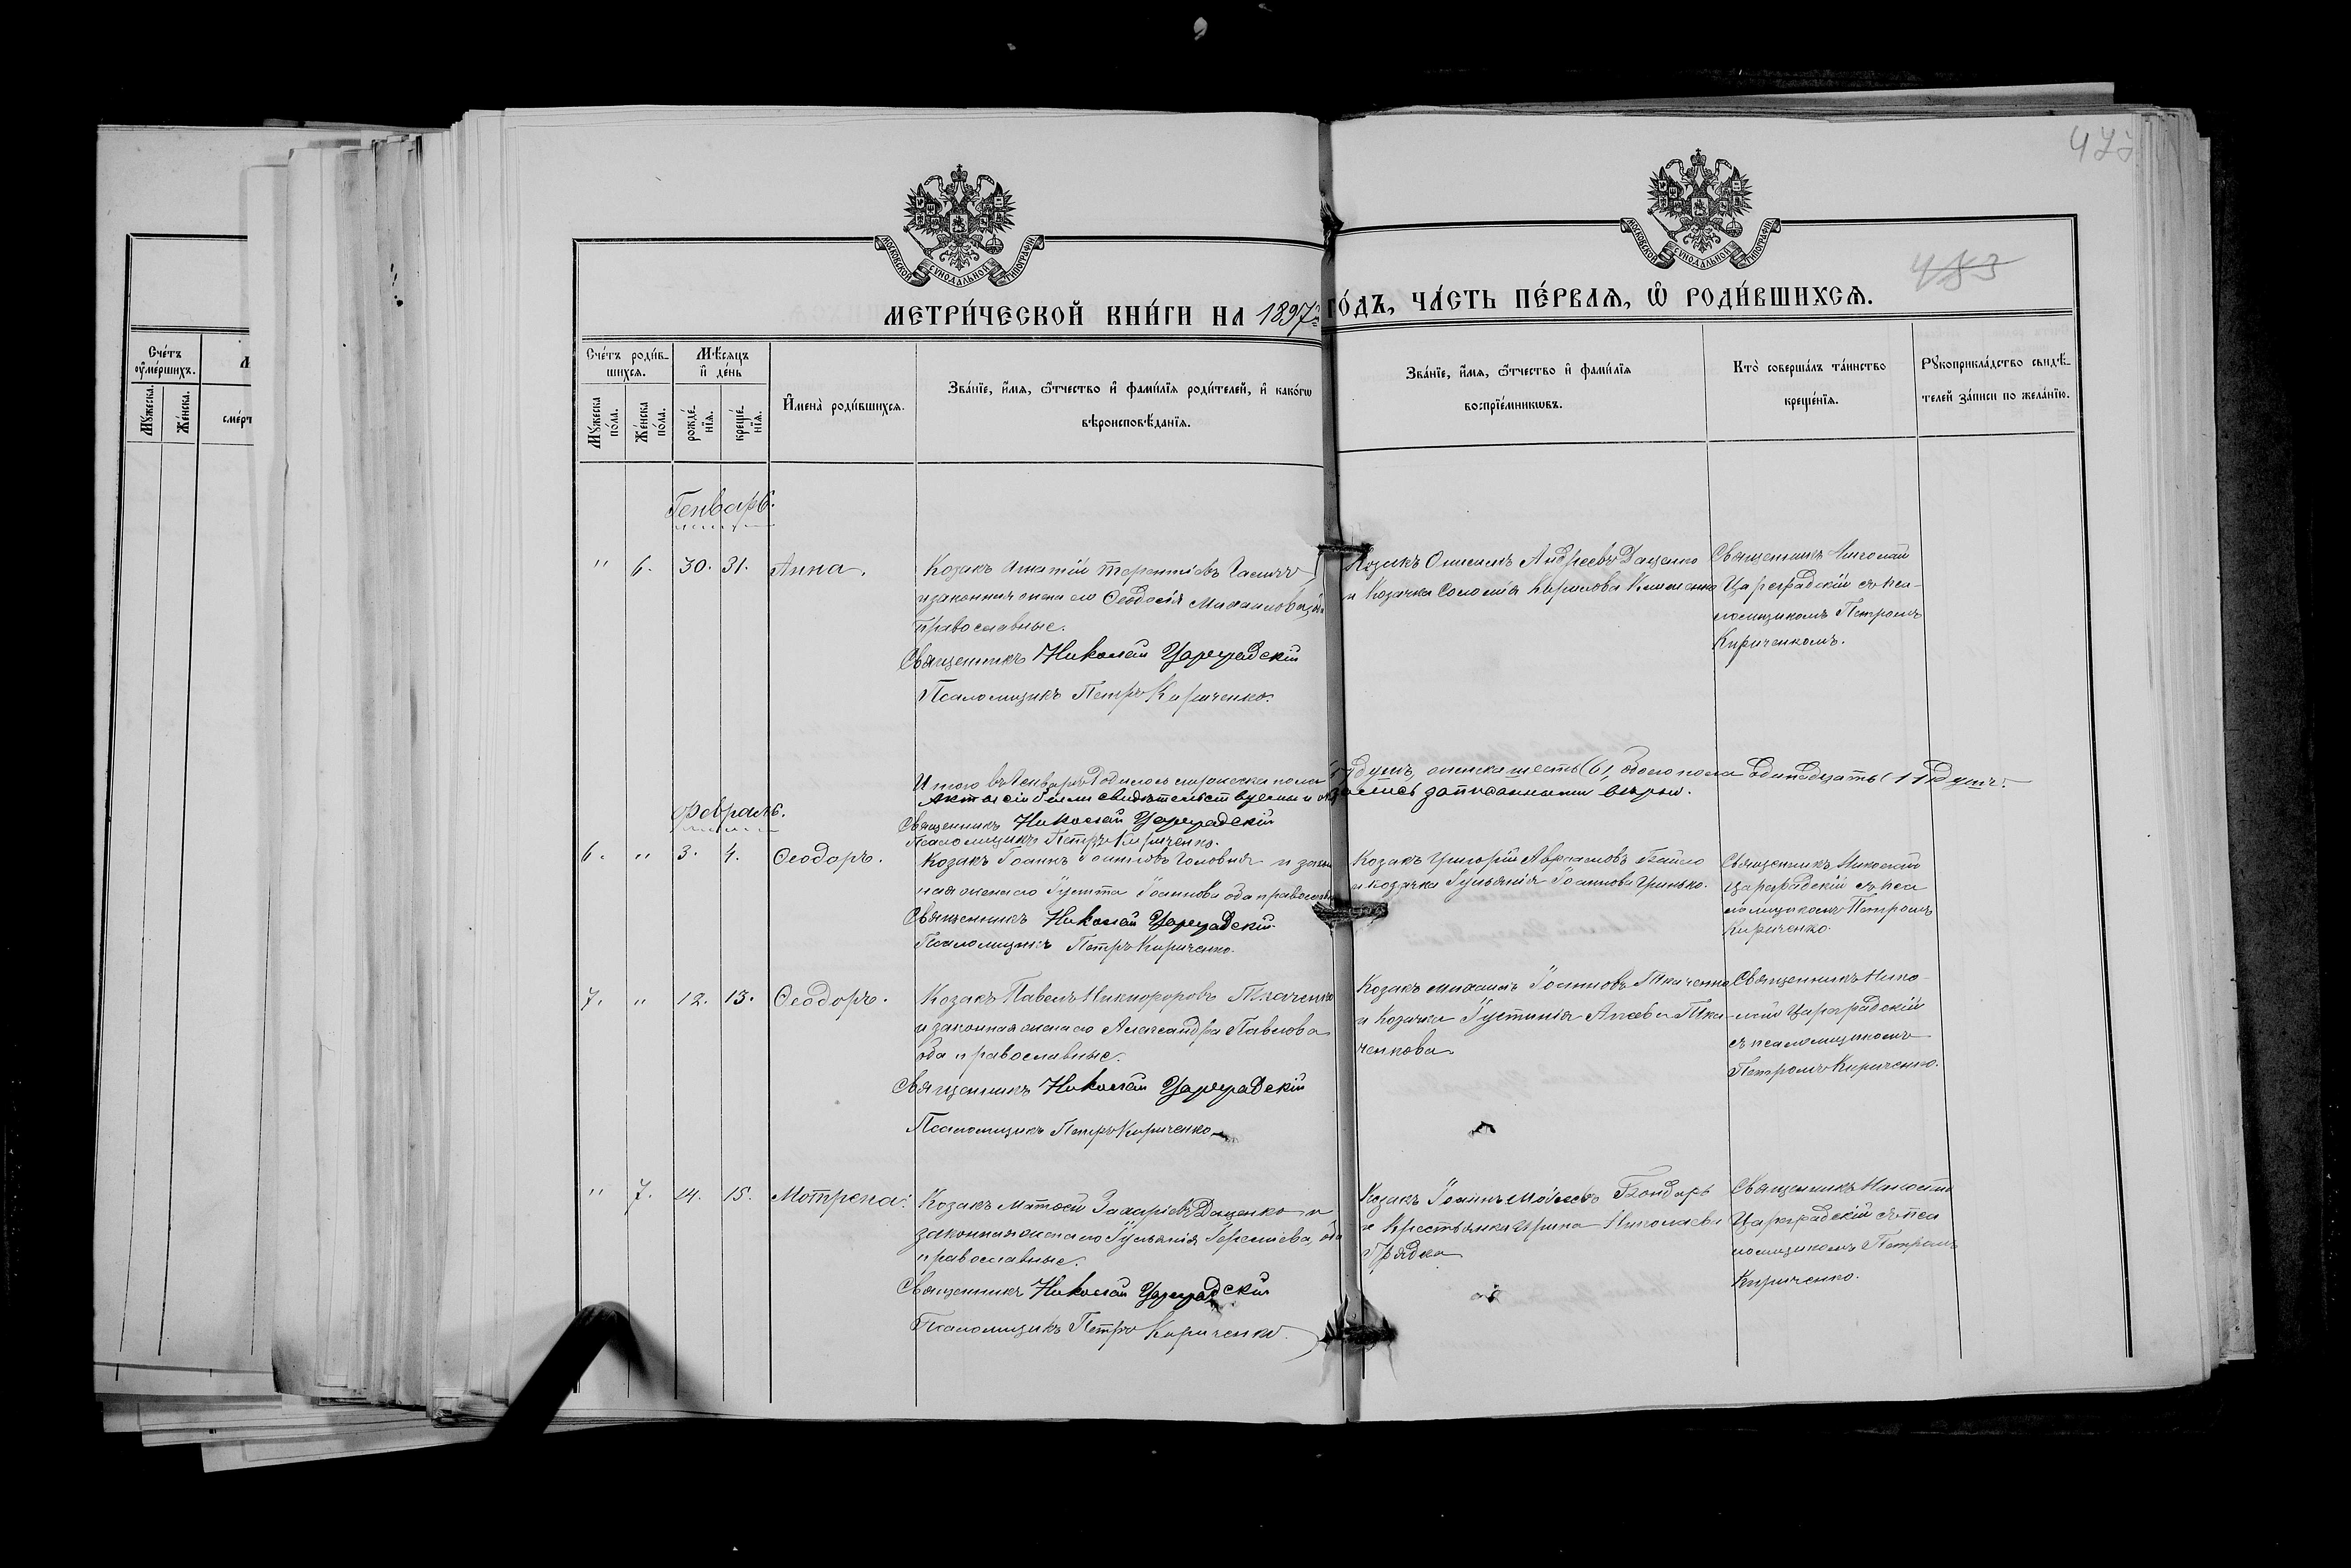 477
483
МОСКОВСКОЙ СѴНОДАЛЬНОЙ ТИПОГРАФІИ
МОСКОВСКОЙ СѴНОДАЛЬНОЙ ТИПОГРАФІИ
МЕТРИ́ЧЕСКОЙ КНИ́ГИ НА 1897й ГО́ДЪ, ЧА́СТЬ ПЕ́РВАѦ, Ѿ РОДИ́ВШИХСѦ.
Сче́тъ ᲂу҆ме́ршихъ.
Мꙋ́жеска.
Же́нска.
Сче́тъ роди́вшихсѧ.
Мꙋ́жеска по́ла.
Же́нска по́ла.
Мѣ́сѧцъ и҆ де́нь
рожде́нїѧ.
креще́нїѧ.
И҆мена̀ роди́вшихсѧ.
Зва́нїе, и҆́мѧ, ѻ҆́тчество и҆ фами́лїѧ роди́телей, и҆ како́гѡ
вѣроисповѣ́данїѧ.
Зва́нїе, и҆́мѧ, ѻ҆́тчество и҆ фами́лїѧ
воспрїе́мникѡвъ.
Кто̀ соверша́лъ та́инство
креще́нїѧ.
Рꙋкоприкла́дство свидѣ́телей за́писи по жела́нїю.
Генварь.
" 6. 30. 31. Анна.
Козакъ Терентіевъ
и законная жена его Ѳеодосія Михаилова, оба
православные.
Священникъ Николай Цареградскій
Псаломщикъ Петръ Кириченко.
Козакъ Онисимъ Андреевъ Даценко
и Козачка Соломія Кирилова
Священникъ Николай
Цареградскій съ пса-
ломщикомъ Петромъ
Кириченкомъ.
Итого въ Генварѣ родилось мужеска пола душъ, женска шесть (6), обоего пола одинадцать (11) душъ.
Акты сіи были свидѣтельствуемы и оказались записанными вѣрно.
Священникъ Николай Цареградскій
Псаломщикъ Петръ Кириченко.
Февраль.
6. " 3. 4. Ѳеодоръ.
Козакъ Іоаннъ Головня и закон
ная жена его Іоаннова оба православн
Священникъ Николай Цареградскій
Псаломщикъ Петръ Кириченко.
Козакъ Григорій Авраамовъ Бойло
и козачка Іуліанія Іоаннова Гринько.
Священникъ Николай
Цареградскій съ пса
ломщикомъ Петромъ
Кириченко.
7. " 12. 13. Ѳеодоръ.
Козакъ Павелъ Никифоровъ Ткаченко
и законная жена его Александра Павлова
оба православные.
Священникъ Николай Цареградскій
Псаломщикъ Петръ Кириченко
Козакъ Михаилъ Іоанновъ Ткаченко
и Козачка Іустинія Ткаченкова
Священникъ Нико-
лай Цареградскій
съ псаломщикомъ
Петромъ Кириченко.
" 7. 14. 15. Мотрена.
Козакъ Матѳей Захаріевъ Даценко и
законная жена его Іуліанія Іереміева, оба
православные.
Священникъ Николай Цареградскій
Псаломщикъ Петръ Кириченко.
Козакъ Іоаннъ Моѵсеевъ Бондарь
и Крестьянка Ирина Николаева
Грядка
Священникъ Николай
Цареградскій съ пса
ломщикомъ Петромъ
Кириченко.